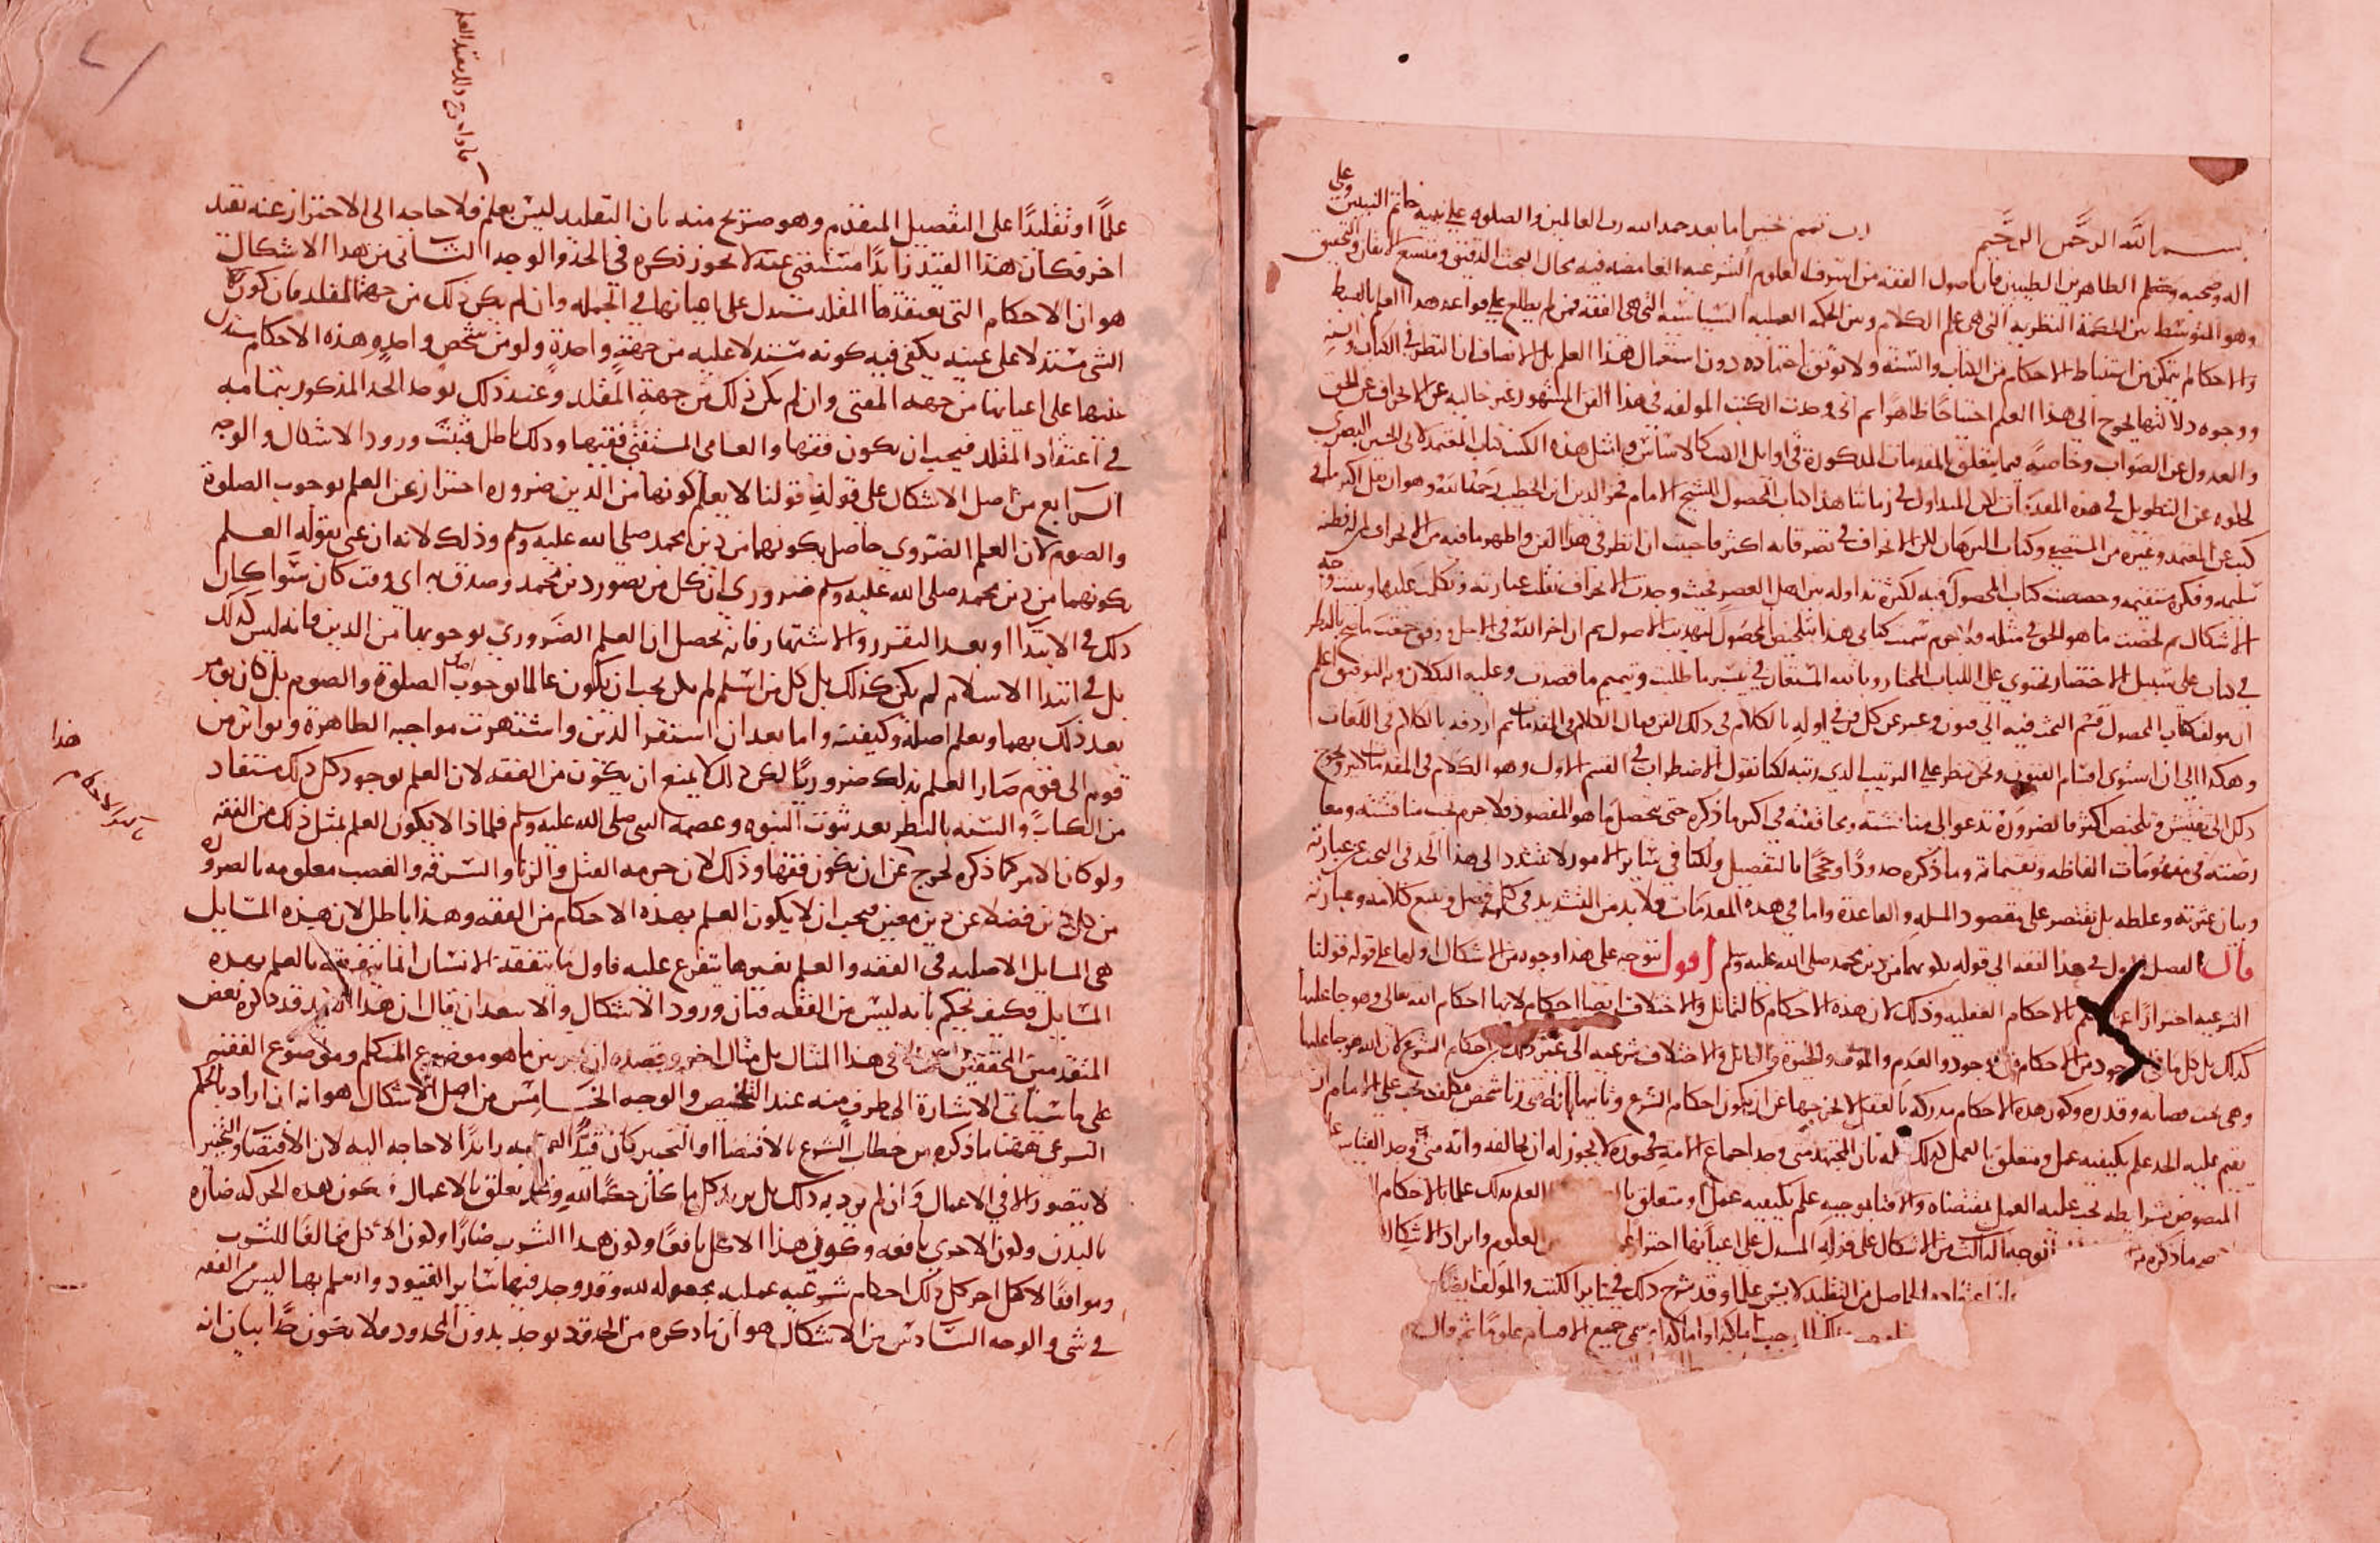 بسم الله الرحمن الرحيم رب تمم بخير اما بعد حمد الله رب العالمين والصلوة على نبيه خاتم النبيين وعلى
اله وصحبه الطاهرين الطيبين فان اصول الفقه من اشرف العلوم الشرعيه الغامضه فيه مجال البحث الدقيق ومتسع الاتقان والتحقيق
وهو المتوسط بين الحكمة النظريه التى هى علم الكلام وبين الحكمه العمليه السياسيه التى هى الفقه فمن لم يطلع على قواعد هذا العلم بالضبط
والاحكام لم يتمكن من استنباط الاحكام من الكتاب والسنه ولا يوثق باجتهاده دون استعمال هذا العلم بل الانصاف ان النظر فى الكتاب والسنه
ووجوه دلالتها يحوج الى هذا العلم احتياجًا ظاهرًا ثم انى وجدت الكتب المولفه فى هذا الفن المشهور غير خاليه عن الانحراف عن الحق
والعدول عن الصواب وخاصة فيما يتعلق بالمقدمات المذكورة فى اوايل الكتب كالاساس وامثل هذه الكتب كتاب المعتمد لابى الحسين البصرى
لخلوه عن التطويل فى هذه المقدمات لكن المتداول فى زماننا هذا كتاب المحصول للشيخ الامام فخر الدين ابن الخطيب رحمه الله وهو ان نقل اكثر ما فى
كتبه عن المعتمد وغيره من المستصفى وكتاب البرهان لكن الانحراف فى تصرفاته اكثر فاحببت ان انظر فى هذا الفن واظهر ما فيه من الانحراف لمن له فطنه
سليمه وفكرة مستقيمه وخصصت كتاب المحصول فيه لكثرة تداوله بين اهل العصر فحيث وجدت الانحراف نقلت عبارته وتكلمت عليها وبينت وجه
الاشكال ثم لخصت ما هو الحق فى مثله فلا جرم سميت كتابى هذا بتلخيص المحصول لتهذيب الاصول ثم ان اخر الله فى الاجل ورفق جمعت ما صح بالنظر
فى كتاب على سبيل الاختصار يحتوى على اللباب المختار وبالله المستعان فى تيسير ما طلبت وتتميم ما قصدت وعليه التكلان وبه التوفيق اعلم
ان مولف كتاب المحصول قسم البحث فيه الى فنون وعبر عن كل فن فى اوله بالكلام فى ذلك الفن فقال الكلام فى المقدمات ثم اردفه بالكلام فى اللغات
وهكذا الى ان استوفى اقسام الفنون ونحن ننظر على الترتيب الذى رتبه لكنا نقول الاضطراب فى القسم الاول وهو الكلام فى المقدمات كثير ويحوج
ذلك الى تفتيش وتلخيص اكثر فالضرورة تدعو الى مناقشته ومحاققته فى اكثر ما ذكره حتى يتحصل ما هو المقصود فلا جرم يجب مناقشته ومعا
رضته فى مفهومات الفاظه وتقسيماته وما ذكره حدودًا وحججًا بالتفصيل ولكنا فى ساير الامور لا نتشدد الى هذا الحد فى البحث عن عبارته
وبيان عثرته وغلطه بل نقتصر على مقصود المسله والقاعدة واما فى هذه المقدمات فلا بد من التشديد فى كل فصل وتتبع كلامه وعبارته
قال الفصل الاول فى حد الفقه الى قوله بكونهما من دين محمد صلى الله عليه وسلم اقول يتوجه على هذا وجوه من الاشكال اولها على قوله قولنا
الشرعيه احترازًا عن العلم بالاحكام العقليه وذلك لان هذه الاحكام كالتماثل والاختلاف ايضا احكام لانها احكام الله تعالى وهو جاعلها
كذلك بل كل ما فى الوجود من الاحكام فى الوجود والعدم والموت والحيوة والتماثل والاختلاف شرعيه الى غير ذلك من احكام الشرع لان الله هو جاعلها
وهى تحت قضائه وقدره وكون هذه الاحكام مدركه بالعقل لا يخرجها عن ان يكون احكام الشرع وثانيها انه متى زنا شخص مكلف يجب على الامام ان
يقيم عليه الحد علم بكيفيه عمل ومتعلق بالعمل كذلك علمه بان المجتهد متى وجد اجماع الامة فى صورة لا يجوز له ان يخالفه وانه متى وجد القياس على
المنصوص بشرايطه يجب عليه العمل بمقتضاه والافتا بموجبه علم بكيفيه عمل او متعلق العلم بذلك علما بالاحكام
ما ذكره الوجه الثالث من الاشكال على قوله المستدل على اعيانها احترازًا العلوم وايراد الاشكال
اعتقاده الحاصل من التقليد لا يسمى علما وقد شرح ذلك فى ساير الكتب والمولف ايضًا
اما كذا واما كذا يسمى جميع الاقسام علومًا ثم قال
علمًا او تقليدًا على التفصيل المتقدم وهو صريح منه بان التقليد ليس بعلم فلا حاجه الى الاحتراز عنه بقيد
اخر فكان هذا القيد زايدًا مستغنى عنه لا يجوز ذكره فى الحد والوجه الثانى من هذا الاشكال
هو ان الاحكام التى يعتقدها المقلد مستدل على اعيانها فى الجمله وان لم يكن ذلك من جهة المقلد فان كون
الشى مستدلا على عينه يكفى فيه كونه مستدلا عليه من جهة واحدة ولو من شخص واحد وهذه الاحكام مستدل
عليها على اعيانها من جهه المفتى وان لم يكن ذلك من جهة المقلد وعند ذلك يوجد الحد المذكور بتمامه
فى اعتقاد المقلد فيجب ان يكون فقها والعامى المستفتى فقيها وذلك باطل فثبت ورود الاشكال والوجه
الرابع من اصل الاشكال على قوله قولنا لا يعلم كونها من الدين ضروره احتراز عن العلم بوجوب الصلوة
والصوم لان العلم الضرورى حاصل بكونهما من دين محمد صلى الله عليه وسلم وذلك لانه ان عنى بقوله العلم
بكونهما من دين محمد صلى الله عليه وسلم ضرورى ان كل من تصور دين محمد وصدق به اى وقت كان سوا كان
ذلك فى الابتدا او بعد التقرر والاشتهار فانه يحصل ان العلم الضرورى بوجوبهما من الدين فانه ليس كذلك
بل فى ابتدا الاسلام لم يكن كذلك بل كل من اسلم لم يكن يجب ان يكون عالما بوجوب اصل الصلوة والصوم بل كان يومر
بعد ذلك بهما ويعلم اصله وكيفيته واما بعد ان استقر الدين واشتهرت مواجبه الظاهرة وتواتر من
قوم الى قوم صار العلم بذلك ضروريًا لكن ذلك لا يمنع ان يكون من الفقه لان العلم بوجود كل ذلك مستفاد
من الكتاب والسنه بالنظر بعد ثبوت النبوه وعصمه النبى صلى الله عليه وسلم فلماذا لا يكون العلم بمثل ذلك من الفقه
ولو كان الامر كما ذكره لخرج عن ان يكون فقها وذلك لان حرمه القتل والزنا والسرقه والغصب معلومه بالضروره
من كل دين فضلا عن دين معين فيجب ان لا يكون العلم بهذه الاحكام من الفقه وهذا باطل لان هذه المسايل
هى المسايل الاصليه فى الفقه والعلم بغيرها يتفرع عليه فاول ما يتفقه الانسان انما يتفقه بالعلم بهذه
المسايل فكيف يحكم بانه ليس من الفقه فبان ورود الاشكال والا يبعد ان يقال ان هذا القيد قد ذكره بعض
المتقدمين المحققين فى هذا المثال بل مثال اخر وقصده ان يميز بين ما هو موضوع المتكلم وموضوع الفقيه
على ما سياتى الاشارة الى طرف منه عند التلخيص والوجه الخامس من اصل الاشكال هو انه ان اراد بالحكم
الشرعى ههنا ما ذكره من خطاب الشرع بالاقتضا او التخيير كان قيد العمليه زايدًا لا حاجه اليه لان الاقتضا والتخيير
لا يتصور الا فى الاعمال وان لم يرد به ذلك بل يريد كل ما كان حكمًا لله وله تعلق بالاعمال فيكون هذه الحركه ضاره
بالبدن وكون الاخرى نافعه وكون هذا الاكل نافعًا وكون هذا الشرب ضارًا وكون الاكل مخالفًا للشرب
وموافقًا لاكل اخر كل ذلك احكام شرعيه عمليه مجعوله لله وقد وجد فيها ساير القيود والعلم بها ليس من الفقه
فى شى والوجه السادس من الاشكال هو ان ما ذكره من الحد قد يوجد بدون المحدود فلا يكون حدًا بيان انه
هذا